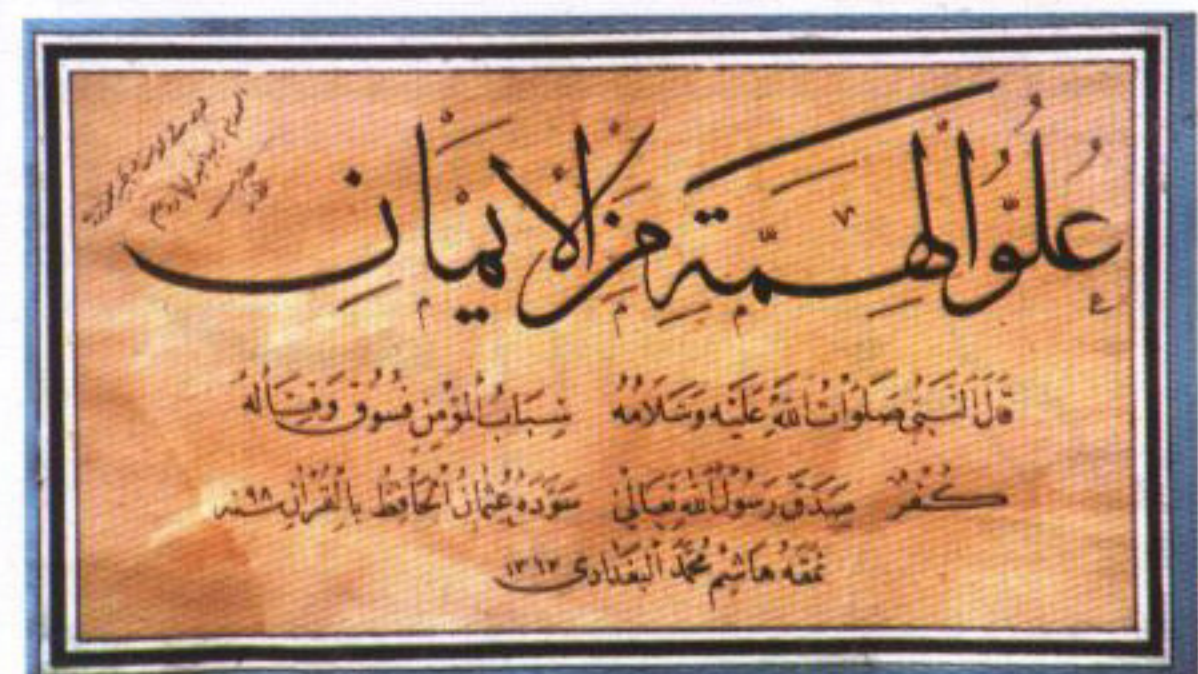 عُلُوُّ الْهِمَّةِ مِنَ الْإِيمَانِ
قَالَ النَّبِيُّ صَلَوَاتُ اللهِ عَلَيْهِ وَسَلَامُهُ سِبَابُ الْمُؤْمِنِ فُسُوقٌ وَقِتَالُهُ
كُفْرٌ صَدَقَ رَسُولُ اللهِ تَعَالَى سَوَّدَهُ عُثْمَانُ الْحَافِظُ بِالْقُرْآنِ سنة ٩٨
نَمَّقَهُ هَاشِمْ مُحَمَّدْ الْبَغْدَادِي